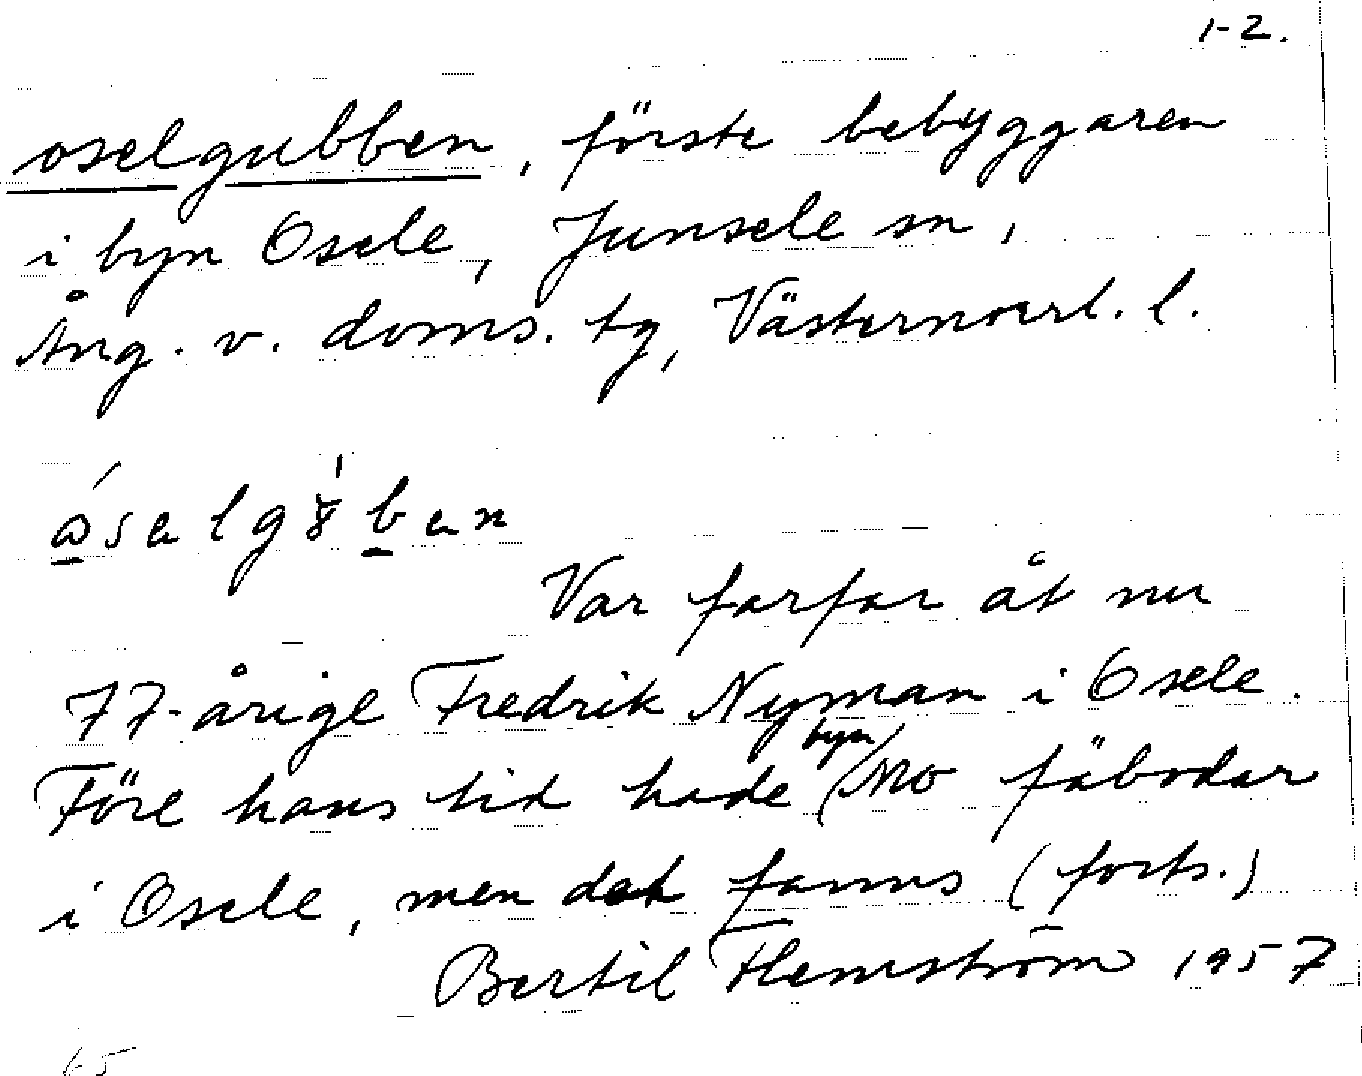 1-2.
oselgubben, förste bebyggaren
i byn Osele, Junsele sn,
Ång. v. doms. tg, Västernorrl. l.
Var farfar åt nu
77-årige Fredrik Nyman i Osele.
Före hans tid hade byn Mo fäbodar
i Osele, men det fanns (forts.)
Bertil Flemström 1957
65